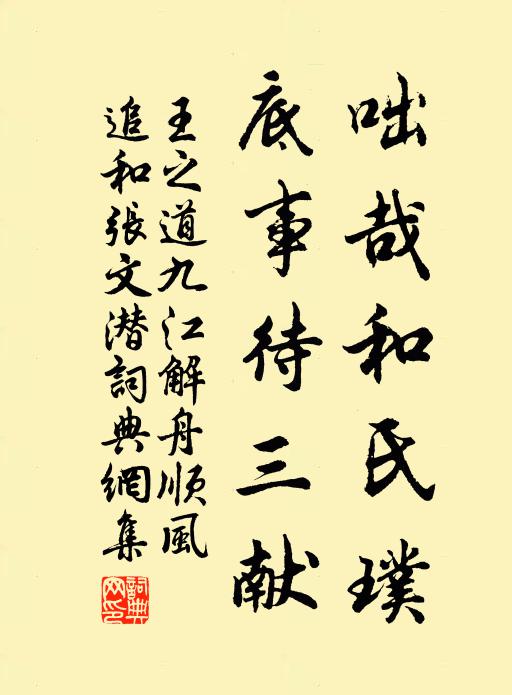 咄哉和氏璞
底事待三献
王之道九江解舟顺风
追和張文潜詞典網集
詞典网印